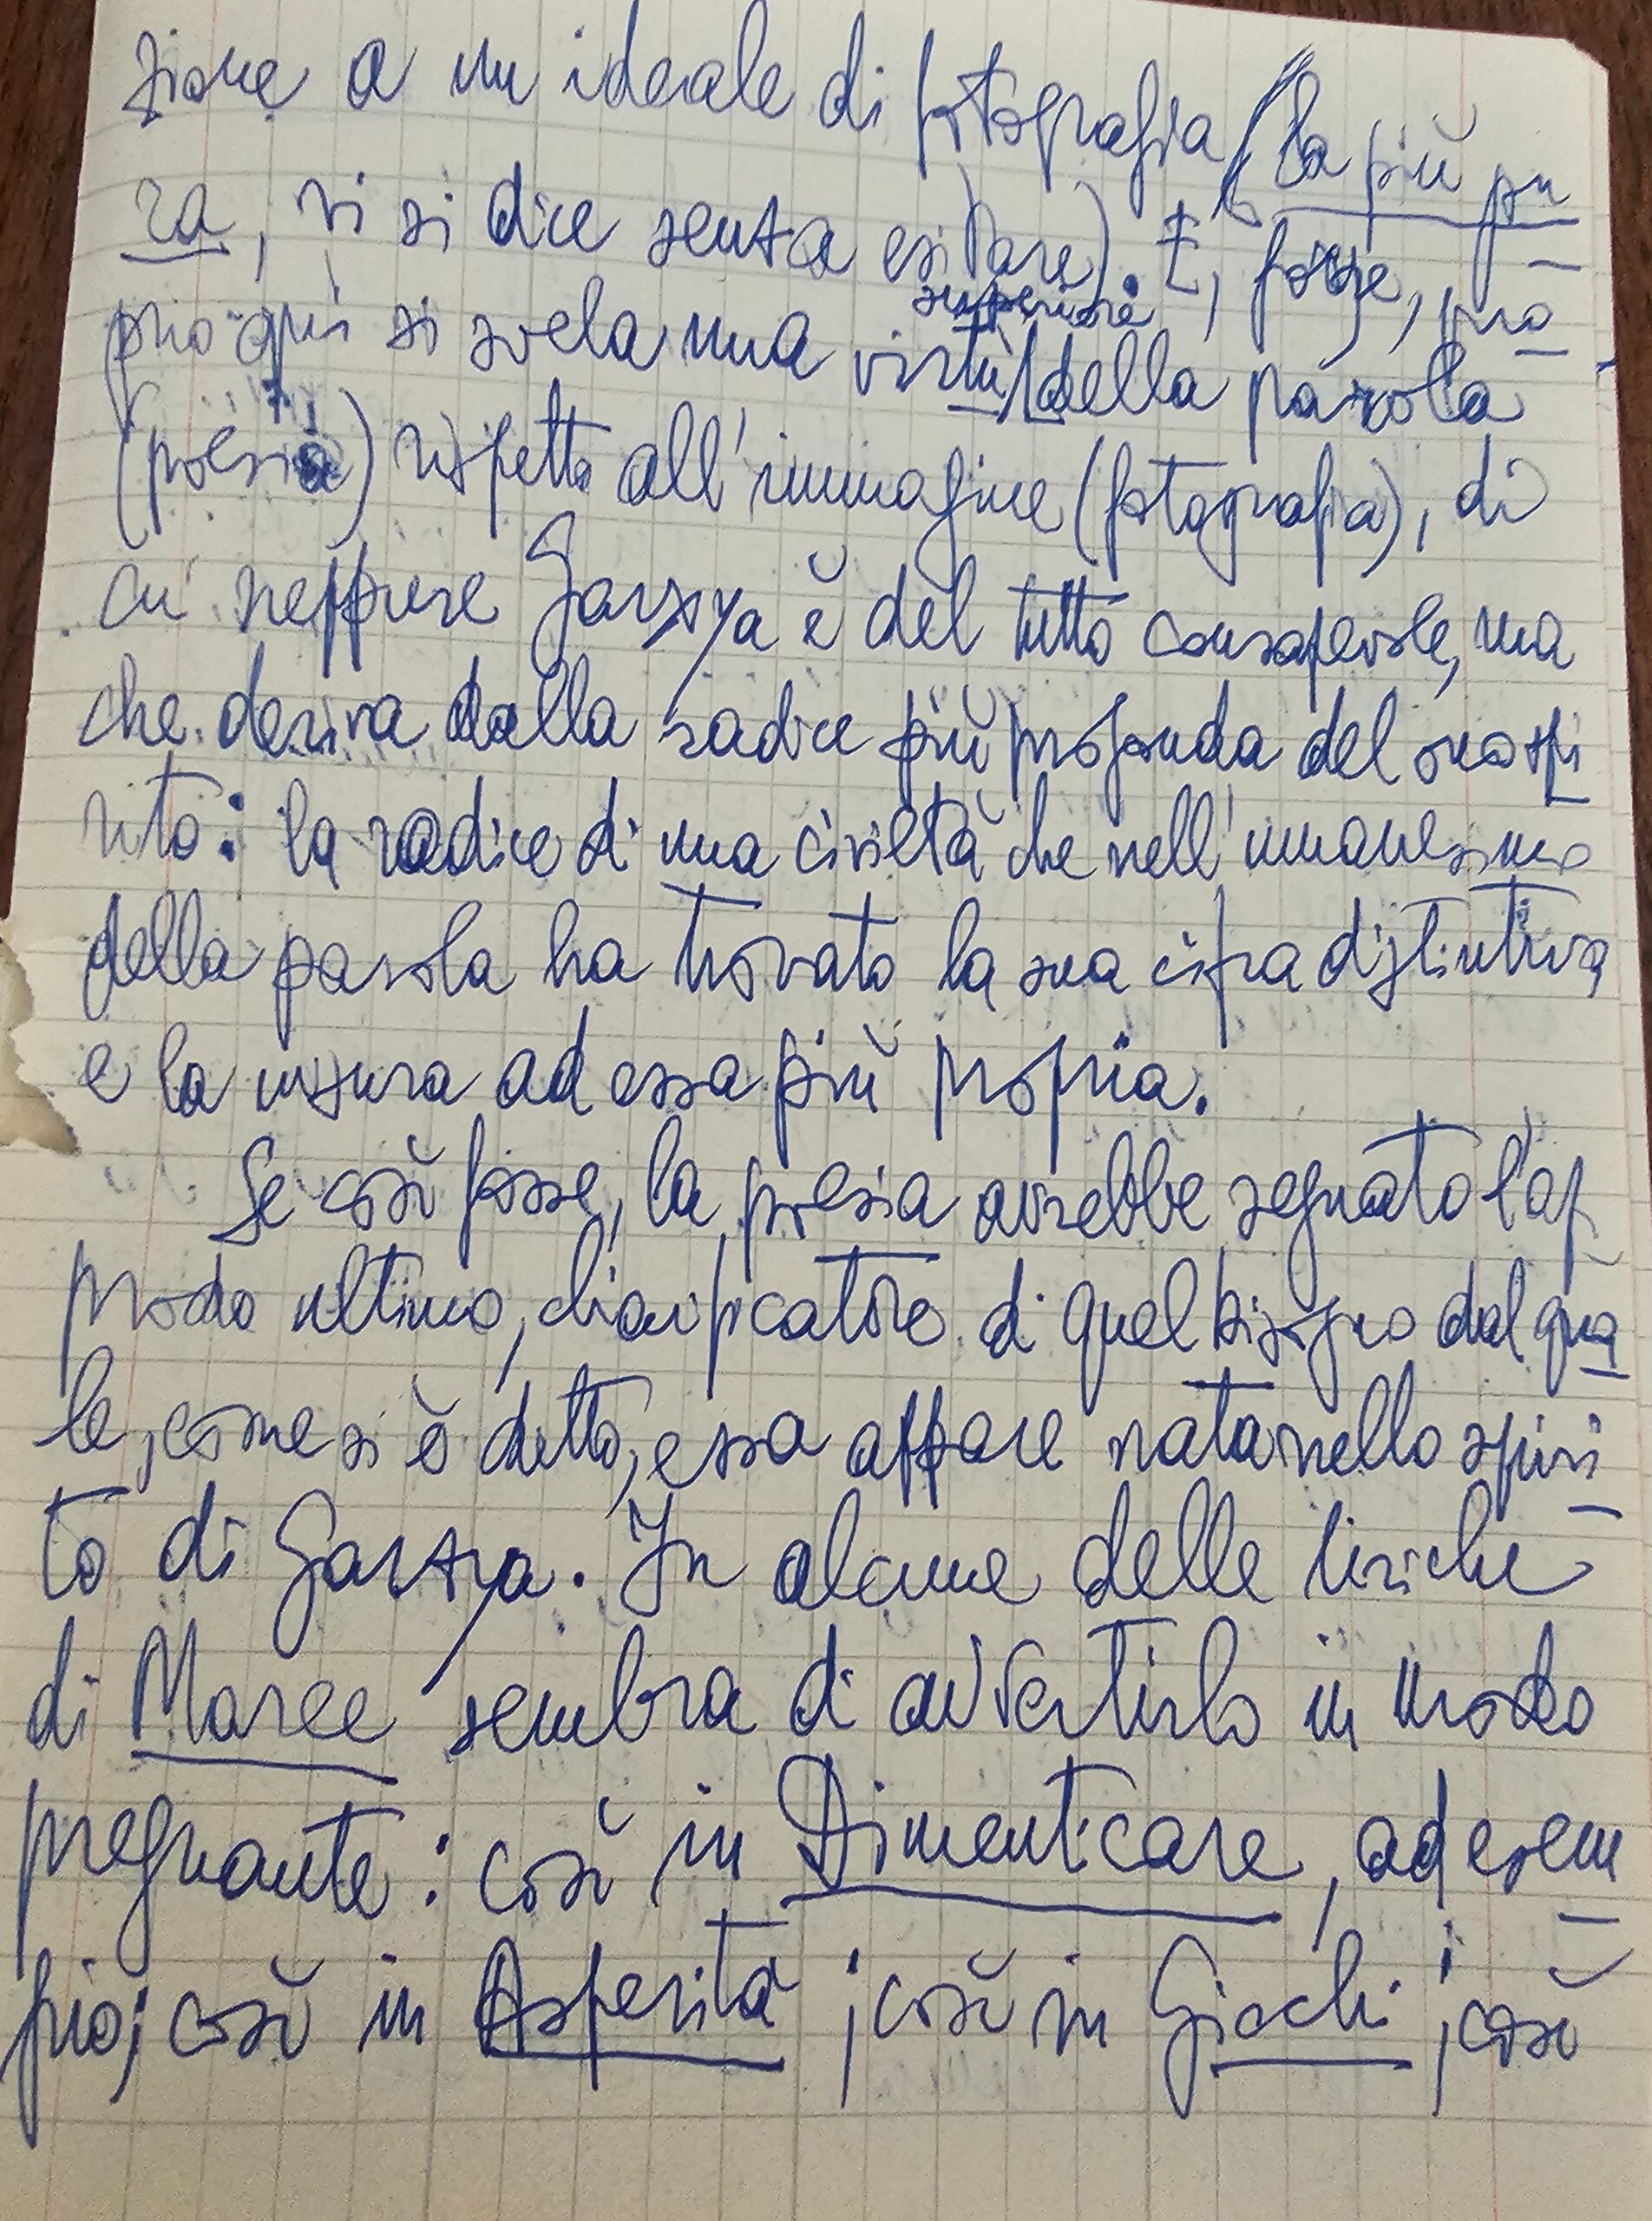 zione a un ideale di fotografia (la più pu
ra, vi si dice senza esitare). E, forse, pro
prio qui si svela una virtù superiore della parola
(poesia) rispetto all'immagine (fotografia), di
cui neppure Garzya è del tutto consapevole, ma
che deriva dalla radice più profonda del suo spi
rito: la radice di una civiltà che nell'umanesimo
della parola ha trovato la sua cifra distintiva
e la misura ad essa più propria.
Se così fosse, la poesia avrebbe segnato l'ap
prodo ultimo, chiarificatore di quel bisogno dal qua
le, come si è detto, essa appare nata nello spiri
to di Garzya. In alcune delle liriche
di Maree sembra di avvertirlo in modo
pregnante: così in Dimenticare, ad esem
pio; così in Asperità; così in Giochi; così